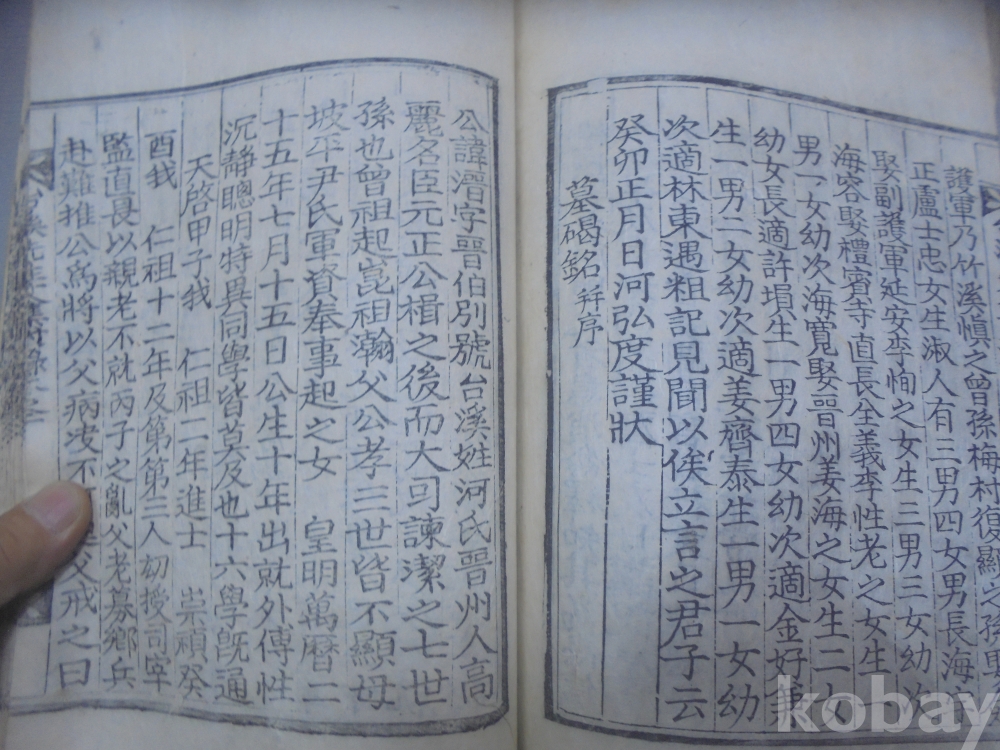 護軍乃竹溪愼之曾孫梅村復顯之孫
正廬士忠女生淑人有三男四女男長海
娶副護軍延安李恂之女生三男三女幼次
海容娶禮賓寺直長全義李性老之女生一
男一女幼次海寬娶晉州姜海之女生二女
幼女長適許塤生一男四女幼次適金好
生一男二女幼次適姜齊泰生一男一女幼
次適林東遇粗記見聞以俟立言之君子云
癸卯正月日河弘度謹狀
墓碣銘 幷序
公諱溍字晉伯別號台溪姓河氏晉州人高
麗名臣元正公楫之後而大司諫潔之七世
孫也曾祖起崑祖瀚父公孝三世皆不顯母
坡平尹氏軍資奉事起之女 皇明萬曆二
十五年七月十五日公生十年出就外傅性
沉靜聰明特異同學皆莫及也十六學旣通
天啓甲子我 仁祖二年進士 崇禎癸
酉我 仁祖十二年及第第三人初授司宰
監直長以親老不就丙子之亂父老募鄉兵
赴難推公爲將以父病
父戒之曰
kobay